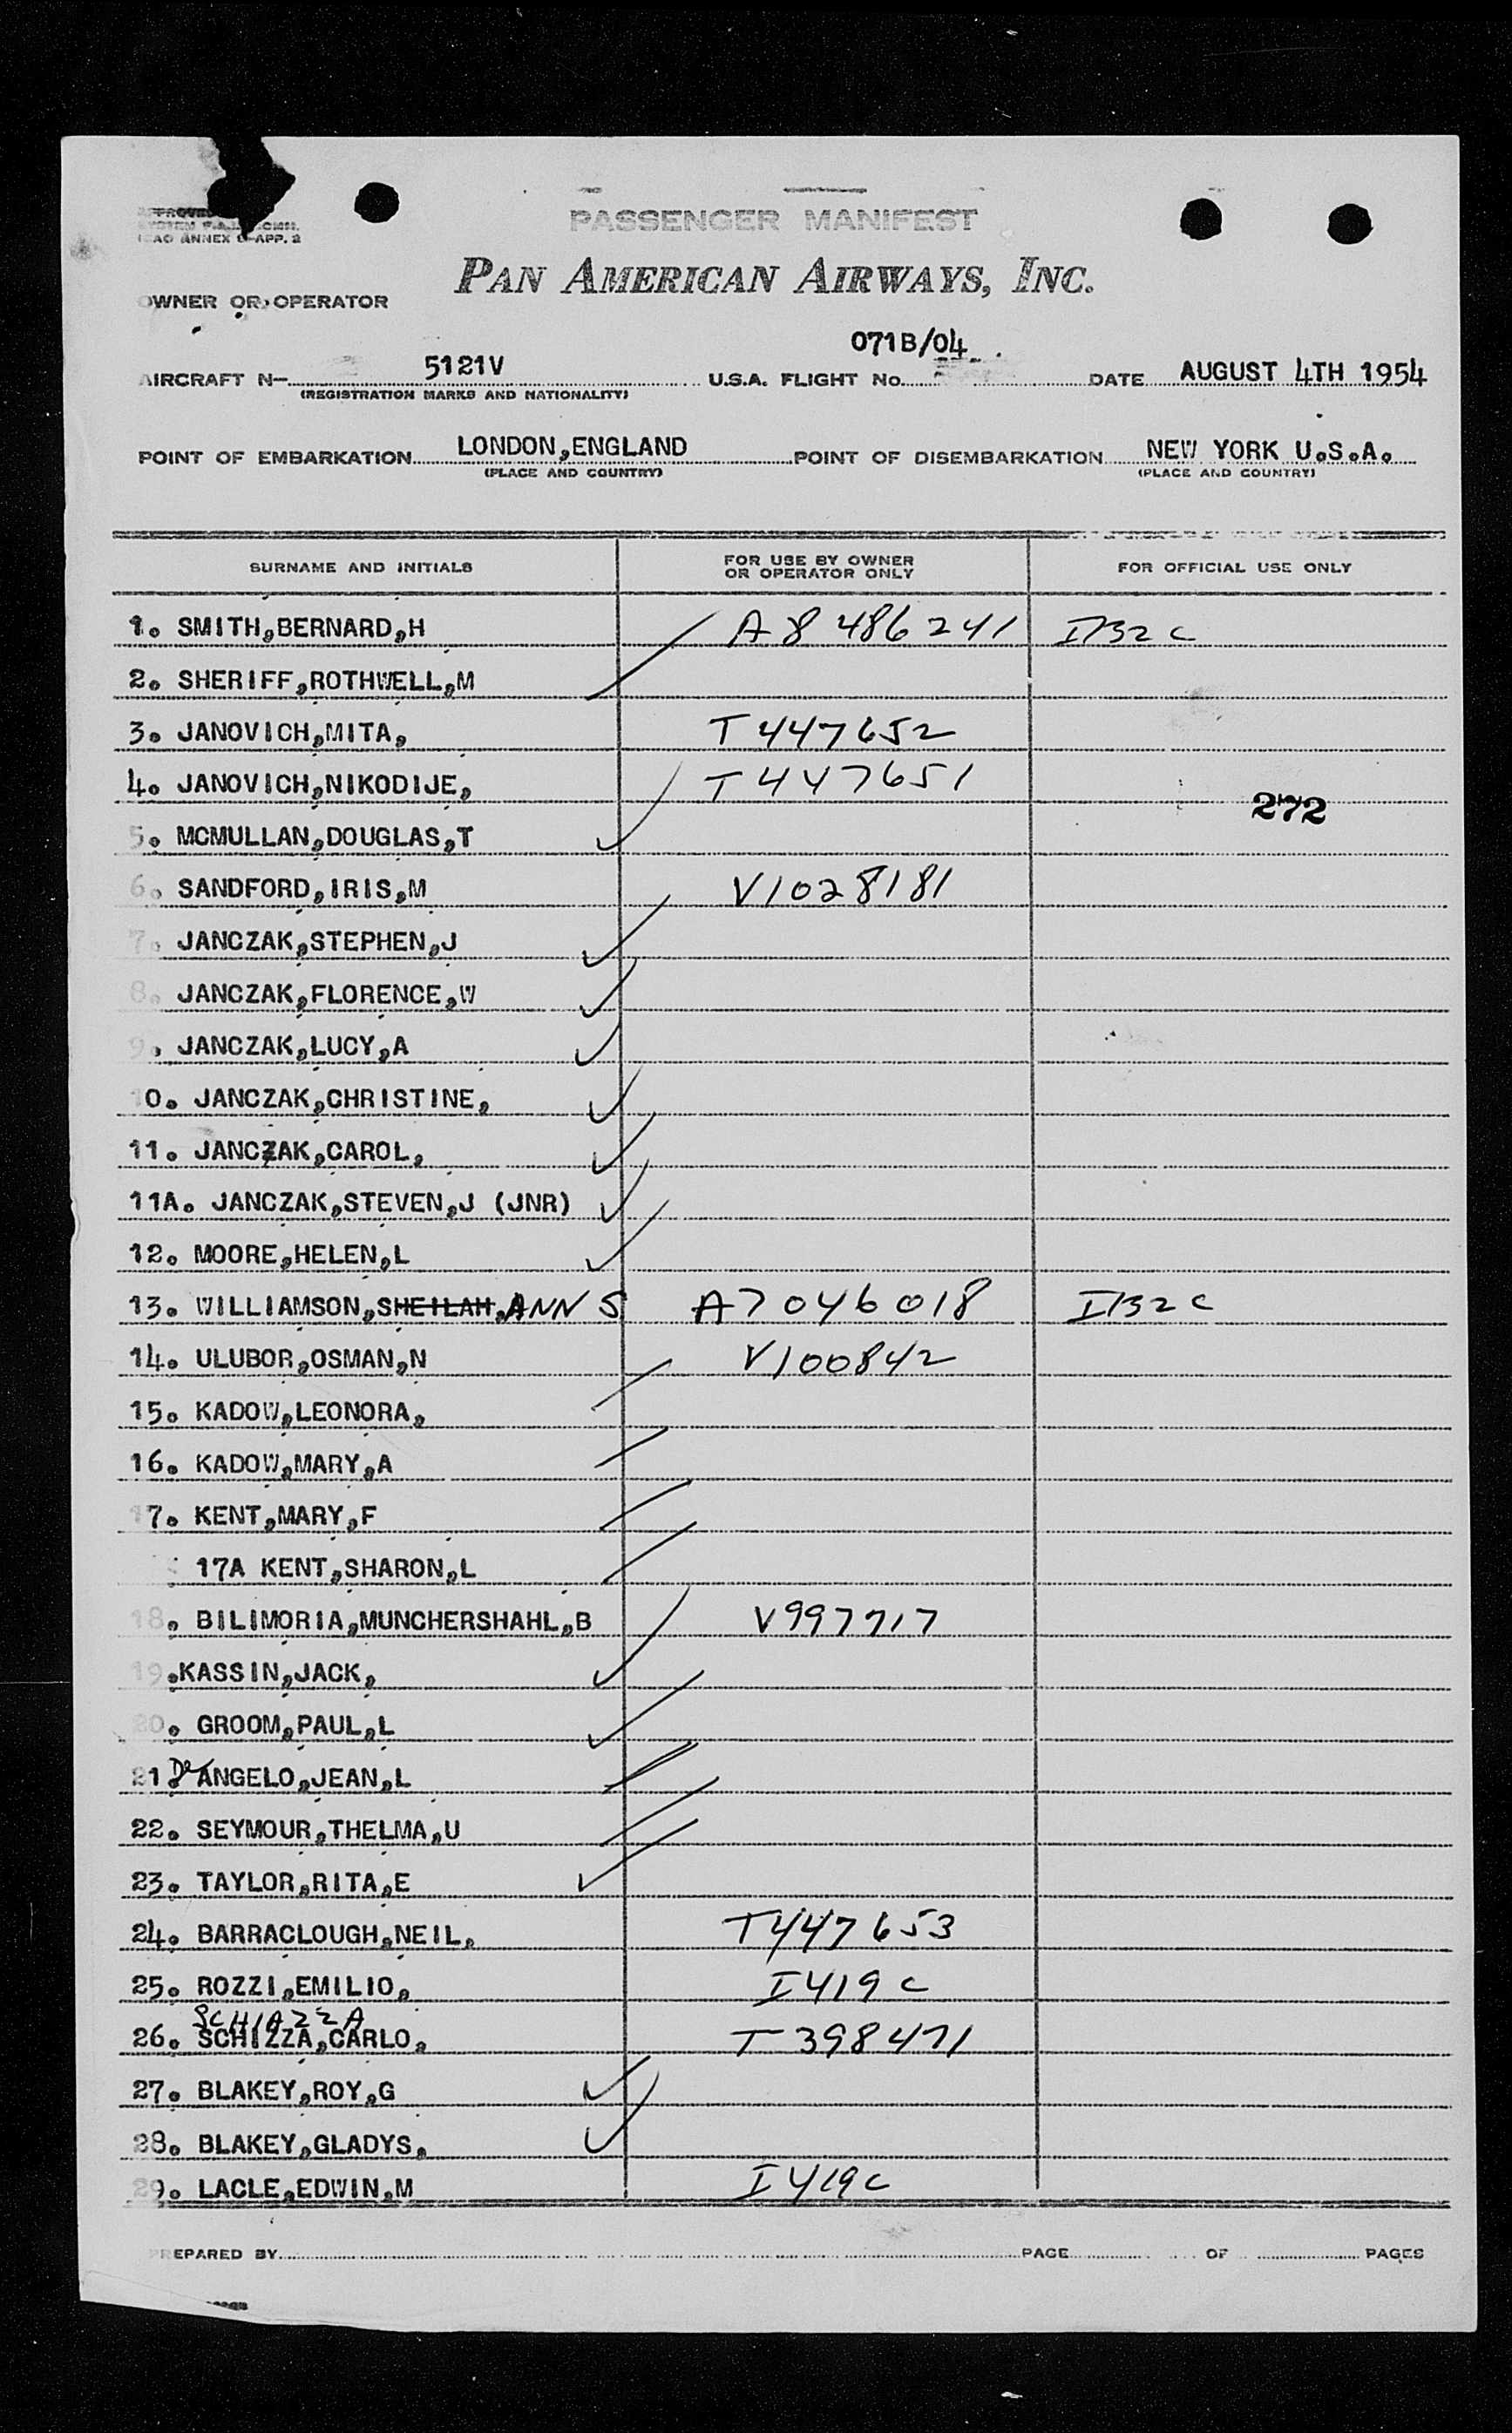 PASSENGER MANIFEST
ICAO ANNEX 9-APP. 2
PAN AMERICAN AIRWAYS, INC.
OWNER OR OPERATOR
071B/04
AIRCRAFT N- 5121V U.S.A. FLIGHT No. DATE AUGUST 4TH 1954
(REGISTRATION MARKS AND NATIONALITY)
POINT OF EMBARKATION LONDON,ENGLAND POINT OF DISEMBARKATION NEW YORK U.S.A.
(PLACE AND COUNTRY) (PLACE AND COUNTRY)
SURNAME AND INITIALS FOR USE BY OWNER OR OPERATOR ONLY FOR OFFICIAL USE ONLY
1. SMITH,BERNARD,H A8 486 241 I132c
2. SHERIFF,ROTHWELL,M
3. JANOVICH,MITA, T447652
4. JANOVICH,NIKODIJE, T447651
272
5. MCMULLAN,DOUGLAS,T
6. SANDFORD,IRIS,M V1028181
7. JANCZAK,STEPHEN,J
8. JANCZAK,FLORENCE,W
9. JANCZAK,LUCY,A
10. JANCZAK,CHRISTINE,
11. JANCZAK,CAROL,
11A. JANCZAK,STEVEN,J (JNR)
12. MOORE,HELEN,L
13. WILLIAMSON,SHEILAH,ANN S A7 046 018 I132c
14. ULUBOR,OSMAN,N V100842
15. KADOW,LEONORA,
16. KADOW,MARY,A
17. KENT,MARY,F
17A KENT,SHARON,L
18. BILIMORIA,MUNCHERSHAHL,B V997717
19.KASSIN,JACK,
20. GROOM,PAUL,L
21. De ANGELO,JEAN,L
22. SEYMOUR,THELMA,U
23. TAYLOR,RITA,E
24. BARRACLOUGH,NEIL, T447653
25. ROZZI,EMILIO, I419c
SCHIAZZA
26. SCHIZZA,CARLO, T398471
27. BLAKEY,ROY,G
28. BLAKEY,GLADYS,
29. LACLE,EDWIN,M I419c
PREPARED BY PAGE OF PAGES